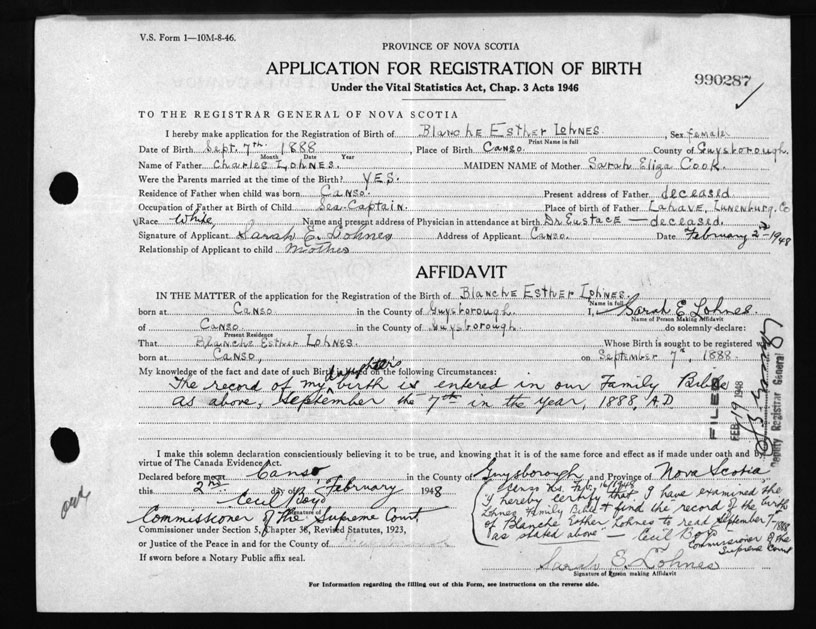 V.S. Form 1—10M-8-46.
PROVINCE OF NOVA SCOTIA
APPLICATION FOR REGISTRATION OF BIRTH
990287
Under the Vital Statistics Act, Chap. 3 Acts 1946
TO THE REGISTRAR GENERAL OF NOVA SCOTIA
I hereby make application for the Registration of Birth of Blanche Esther Lohnes. , Sex female.
Print Name in full
Date of Birth Sept. 7th. 1888 , Place of Birth Canso. County of Guysborough.
Month Date Year
Name of Father Charles Lohnes. MAIDEN NAME of Mother Sarah Eliza Cook.
Were the Parents married at the time of the Birth? YES.
Residence of Father when child was born Canso. Present address of Father deceased
Occupation of Father at Birth of Child Sea-Captain. Place of birth of Father LaHave, Lunenburg. Co
Race White, Name and present address of Physician in attendance at birth Dr Eustace — deceased.
Signature of Applicant Sarah E. Lohnes Address of Applicant Canso. Date February 2nd 1948
Relationship of Applicant to child Mother
AFFIDAVIT
IN THE MATTER of the application for the Registration of the Birth of Blanche Esther Lohnes.
Name in full
born at Canso in the County of Guysborough. I, Sarah E. Lohnes.
Name of Person Making Affidavit
of Canso. in the County of Guysborough. do solemnly declare:
Present Residence
That Blanche Esther Lohnes. Whose Birth is sought to be registered was
born at Canso, on September 7th, 1888.
My knowledge of the fact and date of such Birth is based on the following Circumstances:
The record of my daughter's birth is entered in our Family Bible
as above, September the 7th in the year, 1888, A.D.
FILED
FEB 19 1948
Deputy Registrar General
I make this solemn declaration conscientiously believing it to be true, and knowing that it is of the same force and effect as if made under oath and by
virtue of The Canada Evidence Act.
Declared before me at Canso in the County of Guysborough and Province of Nova Scotia
this 2nd day of February 1948
Cecil Boyd
Signature of
Commissioner of the Supreme Court
Commissioner under Section 3, Chapter 38, Revised Statutes, 1923,
or Justice of the Peace in and for the County of
If sworn before a Notary Public affix seal.
Canso N.S., Feb, 16/1948
I hereby certify that I have examined the
Lohnes Family Bible & find the record of the birth
of Blanche Esther Lohnes to read September 7th 1888
as stated above — Cecil Boyd
Commissioner of the
Supreme Court
Sarah E. Lohnes
Signature of Person making Affidavit
For Information regarding the filling out of this Form, see instructions on the reverse side.